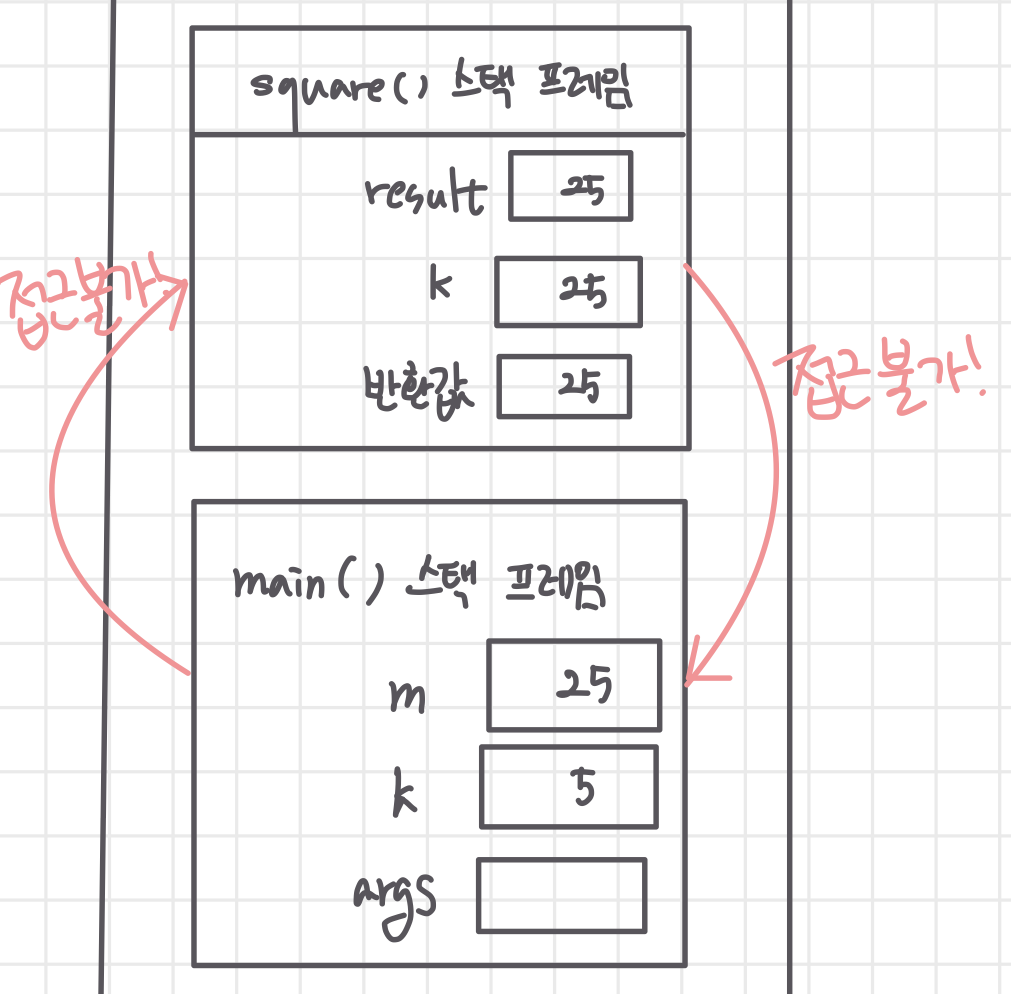 square() 스택 프레임
result 25
k 25
반환값 25
접근불가
접근 불가!
main() 스택 프레임
m 25
k 5
args